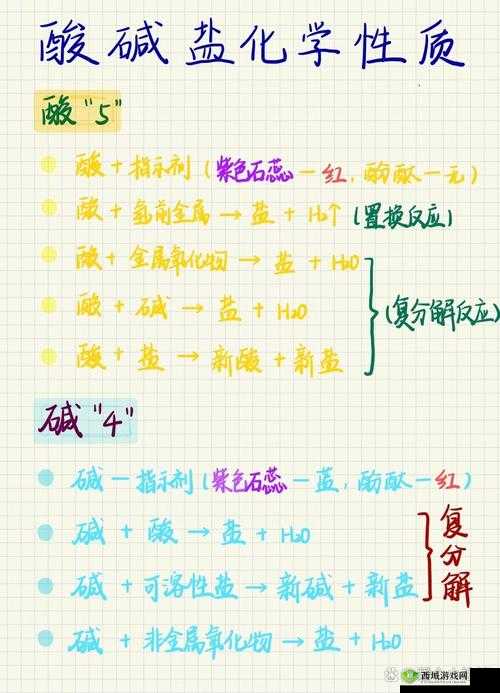 酸碱盐化学性质
酸"5"
酸+指示剂(紫色石蕊—红,酚酞—无)
酸+氢前金属→盐+H₂↑(置换反应)
酸+金属氧化物→盐+H₂O
酸+碱→盐+H₂O
(复分解反应)
酸+盐→新酸+新盐
碱"4"
碱—指示剂(紫色石蕊—蓝,酚酞—红)
碱+酸→盐+H₂O
复分解
碱+可溶性盐→新碱+新盐
碱+非金属氧化物→盐+H₂O
西域游戏网